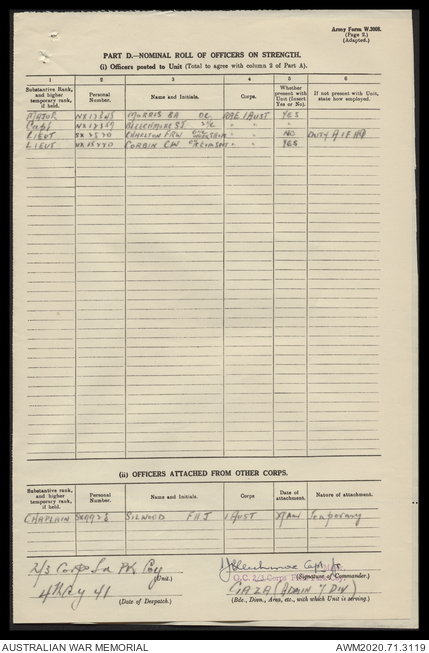 Army Form W.3008.
(Page 2.)
(Adapted.)
PART D.—NOMINAL ROLL OF OFFICERS ON STRENGTH.
(i) Officers posted to Unit (Total to agree with column 2 of Part A).
1 2 3 4 5 6
Substantive Rank, and higher temporary rank, if held.
Personal Number.
Names and Initials.
Corps.
Whether present with Unit (Insert Yes or No).
If not present with Unit, state how employed.
MAJOR MORRIS BA OC 1 AUST YES
Capt " " "
LIEUT CHARLTON FRW " " NO DUTY AIF HQ
LIEUT CORBIN CW " " YES
(ii) OFFICERS ATTACHED FROM OTHER CORPS.
Substantive rank, and higher temporary rank, if held.
Personal Number.
Name and Initials.
Corps
Date of attachment.
Nature of attachment.
CHAPLAIN SILWOOD FHJ 1 AUST Temporary
2/3 Corps Pk Coy
(Unit.)
Capt
O.C. 2/3 Corps
(Signature of Commander.)
41
(Date of Despatch.)
GAZA (ADMIN 7 DIV)
(Bde., Divn., Area, etc., with which Unit is serving.)
AUSTRALIAN WAR MEMORIAL
AWM2020.71.3119